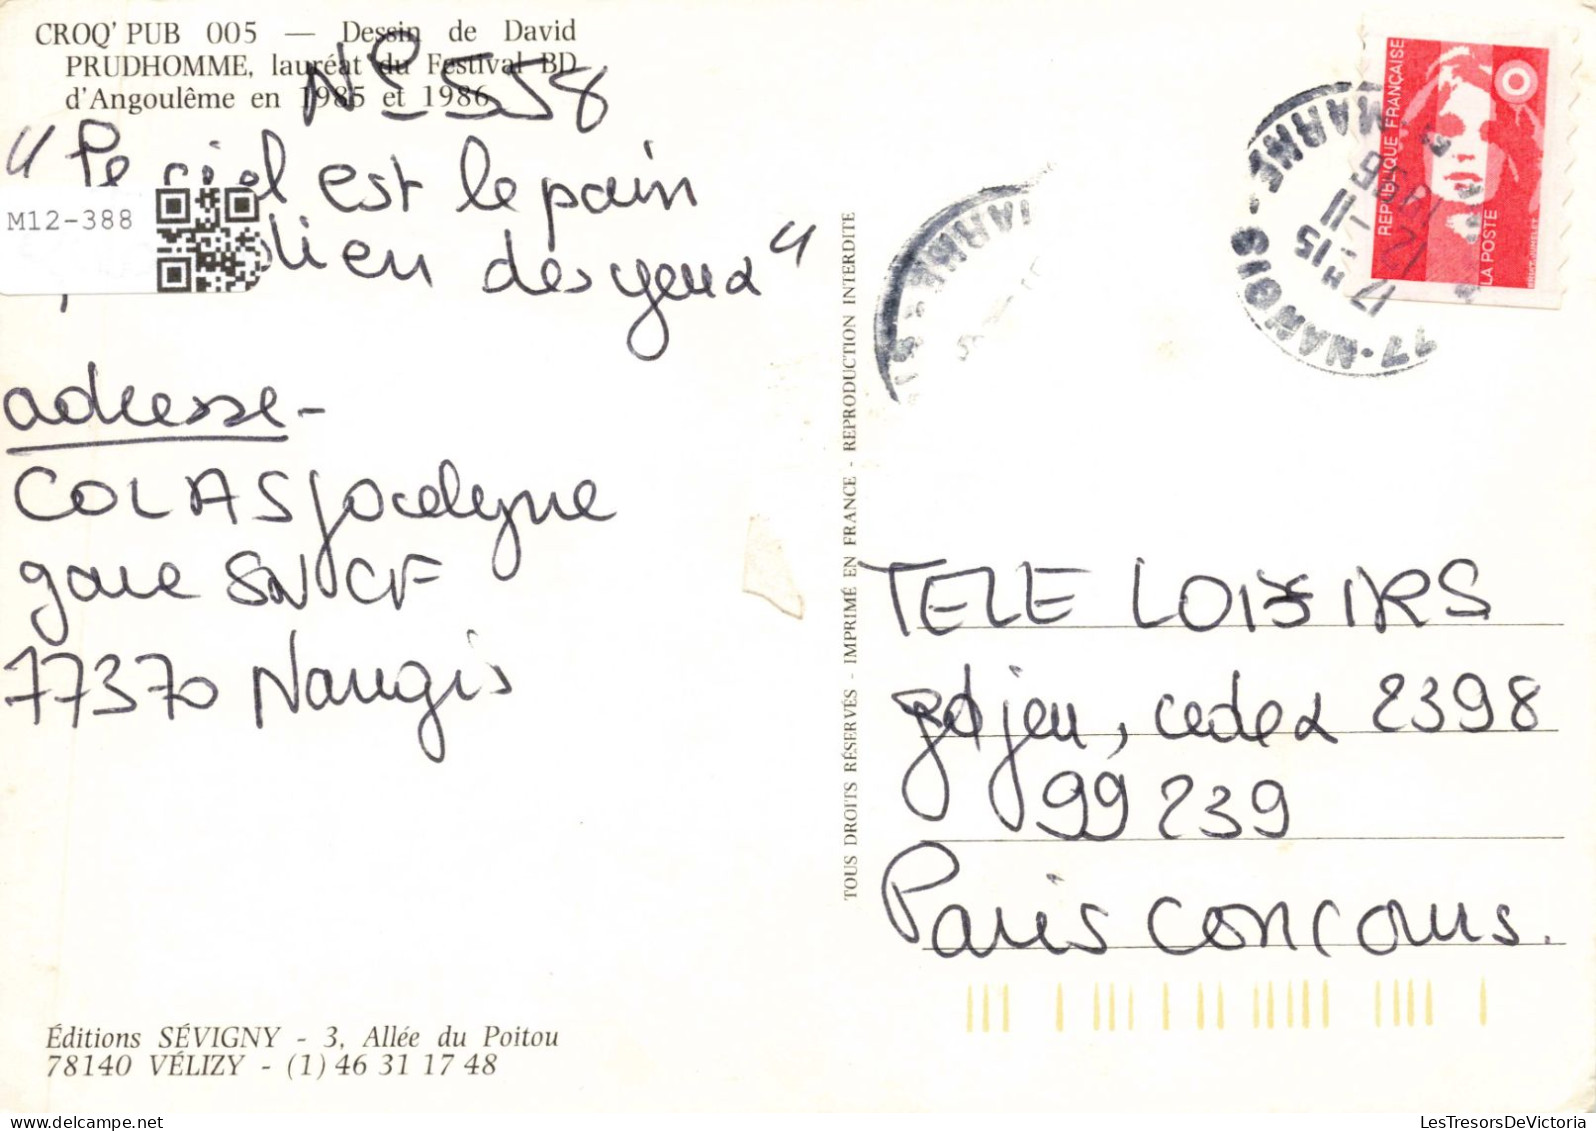 CROQ' PUB 005 — Dessin de David
PRUDHOMME, lauréat du Festival BD
d'Angoulême en 1985 et 1986
N° 558
"le ciel est le pain
M12-388
dien des yeux"
adresse -
COLAS Jocelyne
gare SNCF
77370 Nangis
Éditions SÉVIGNY - 3, Allée du Poitou
78140 VÉLIZY - (1) 46 31 17 48
TOUS DROITS RÉSERVÉS - IMPRIMÉ EN FRANCE - REPRODUCTION INTERDITE
RÉPUBLIQUE FRANÇAISE
LA POSTE
77-NANGIS-
MARNE
17 H 15
12-11
TELE LOISIRS
gd jeu, cedex 2398
99 239
Paris concours.
LesTresorsDeVictoria